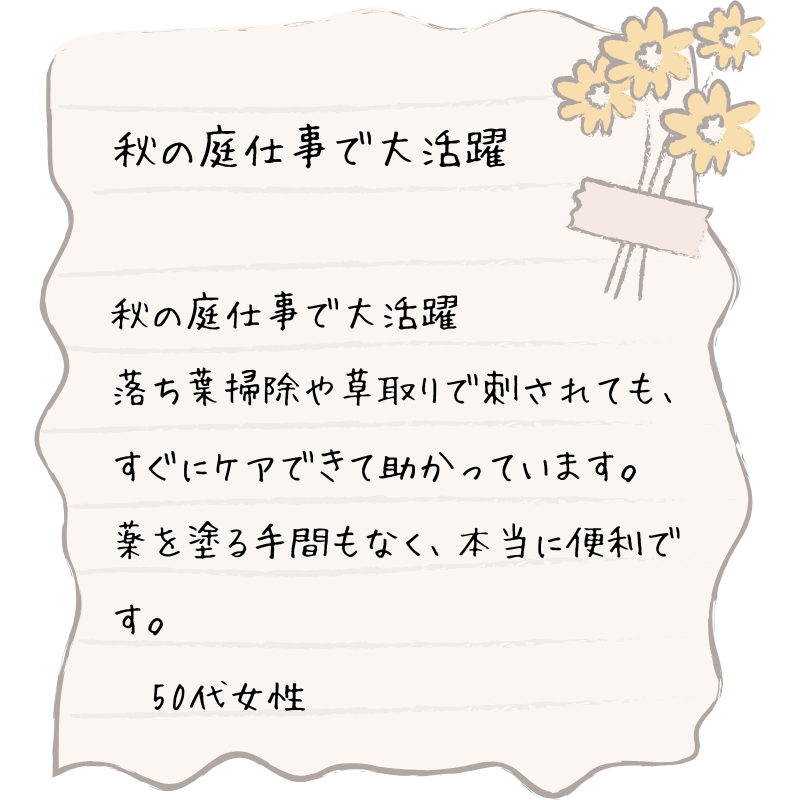 秋の庭仕事で大活躍
秋の庭仕事で大活躍
落ち葉掃除や草取りで刺されても、
すぐにケアできて助かっています。
薬を塗る手間もなく、本当に便利で
す。
50代女性